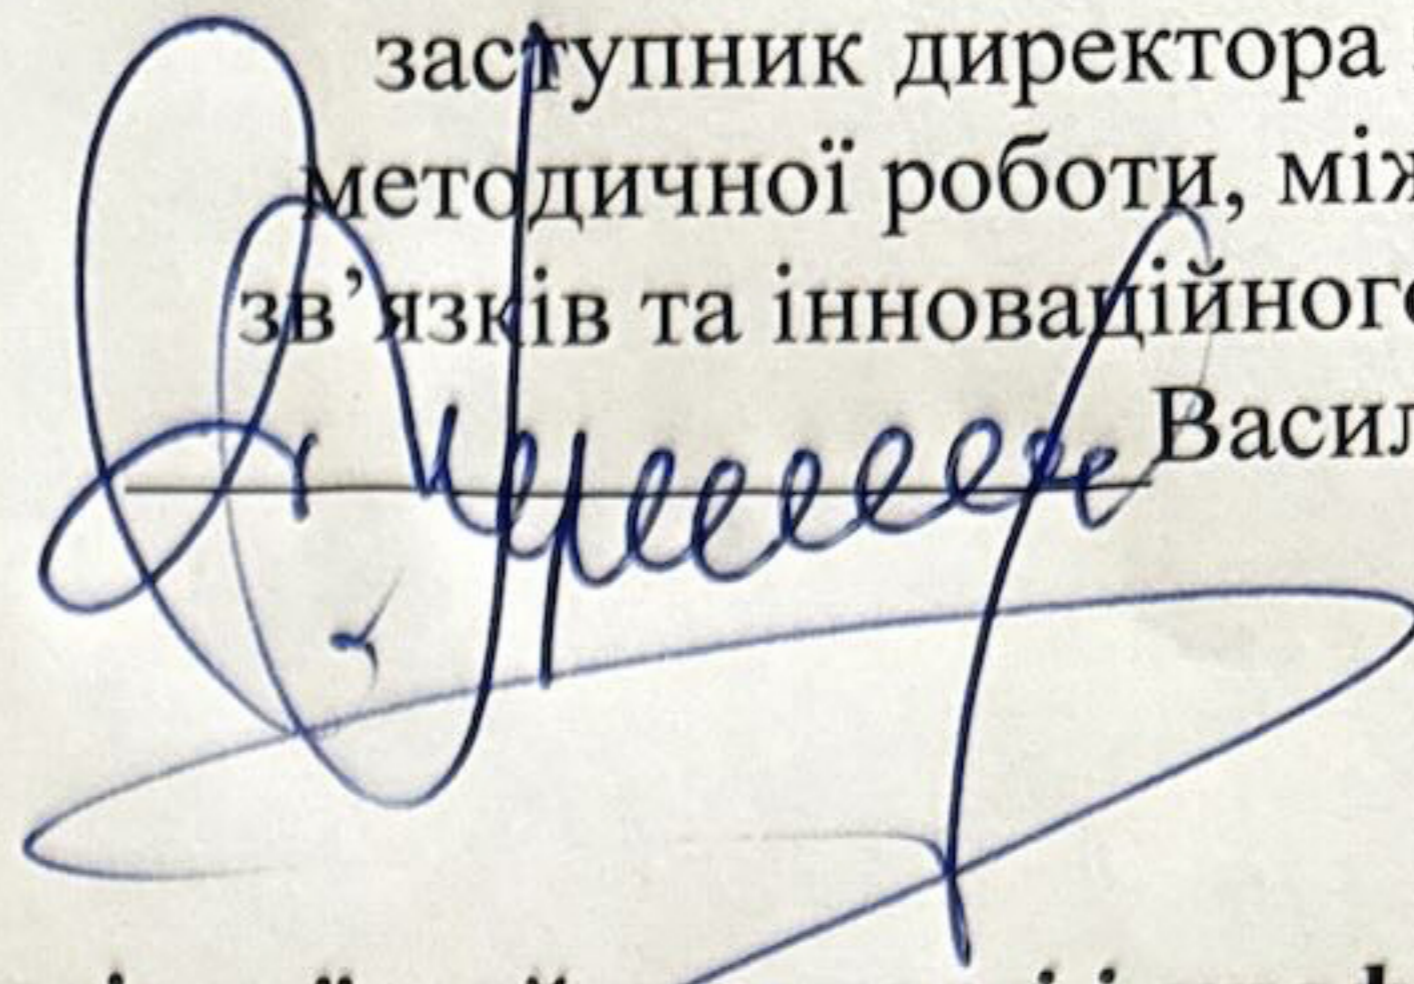 заступник директора
методичної роботи, між
зв’язків та інноваційного
Васил